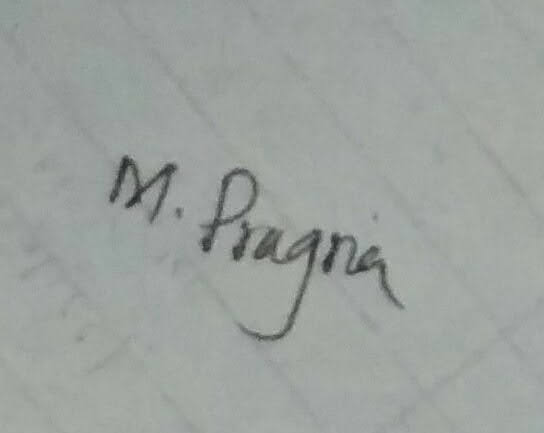 M. Pragna